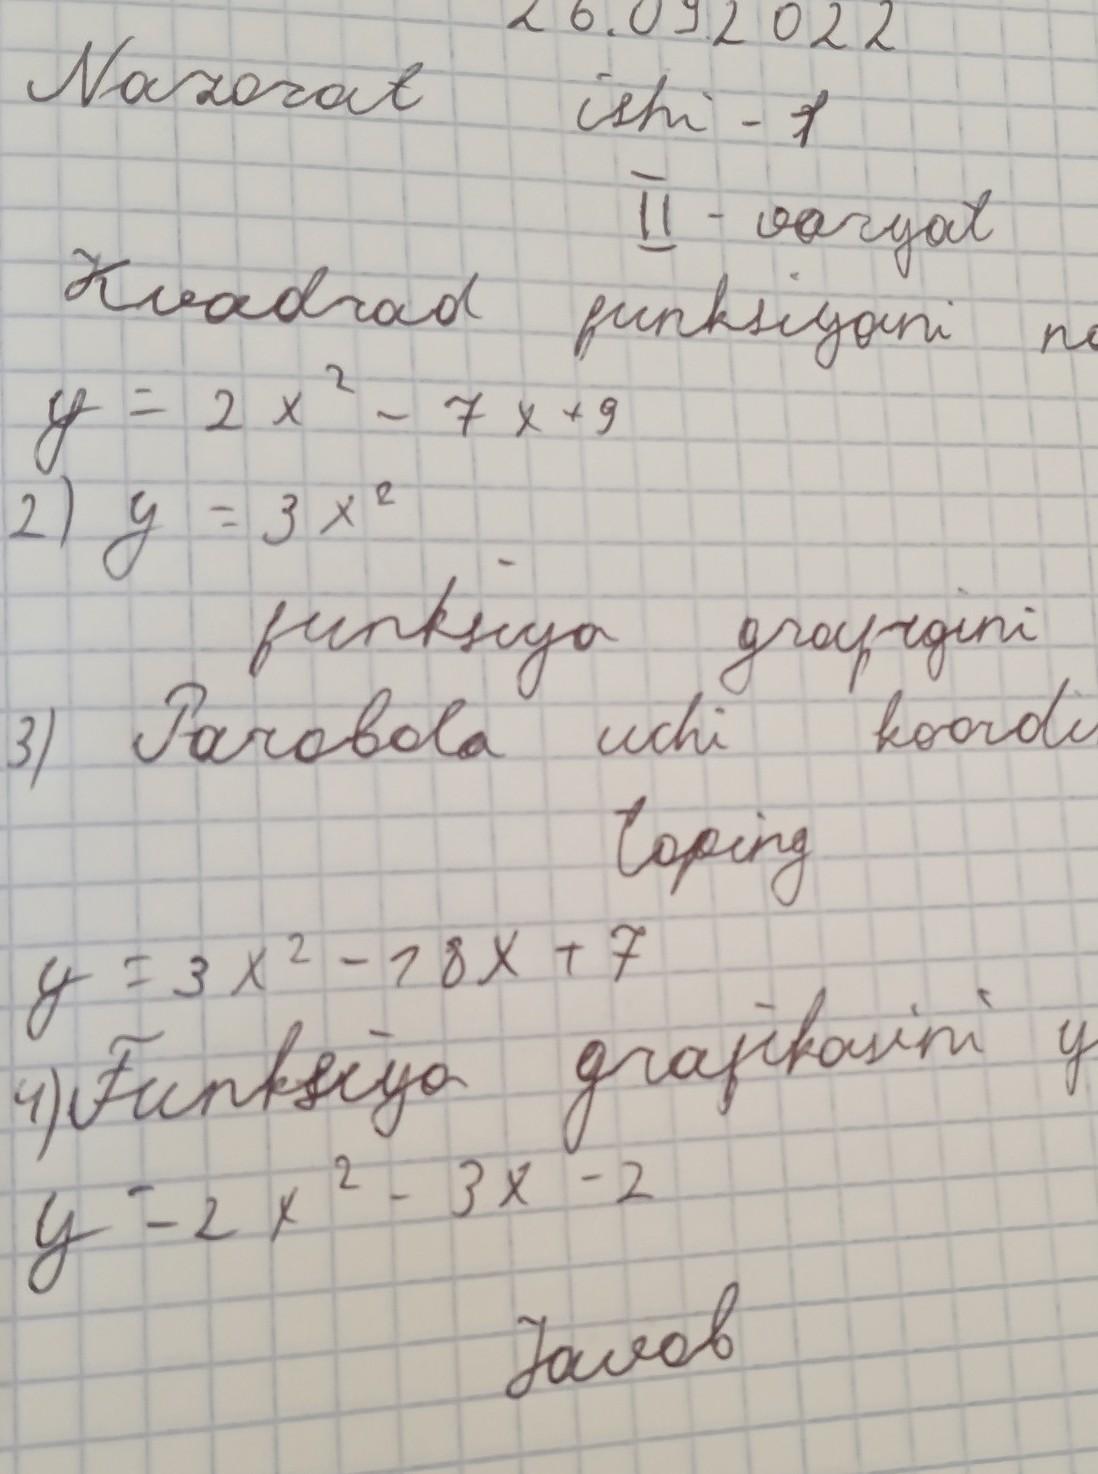 26.09.2022
Nazorat ishi - 1
II - varyat
Kvadrad funksiyani
y = 2x² - 7x + 9
2) y = 3x²
funksiya grafigini
3) Parabola uchi koordi
toping
y = 3x² - 18x + 7
4) Funksiya grafikasini y
y = 2x² - 3x - 2
Javob